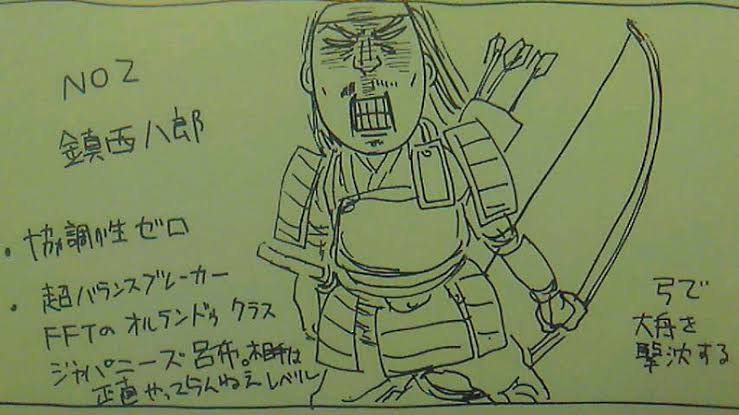 NO2
鎮西八郎
・協調性ゼロ
・超バランスブレーカー
FFTのオルランドゥクラス
ジャパニーズ呂布。相手は
正直やってらんねえレベル
弓で
大舟を
撃沈する